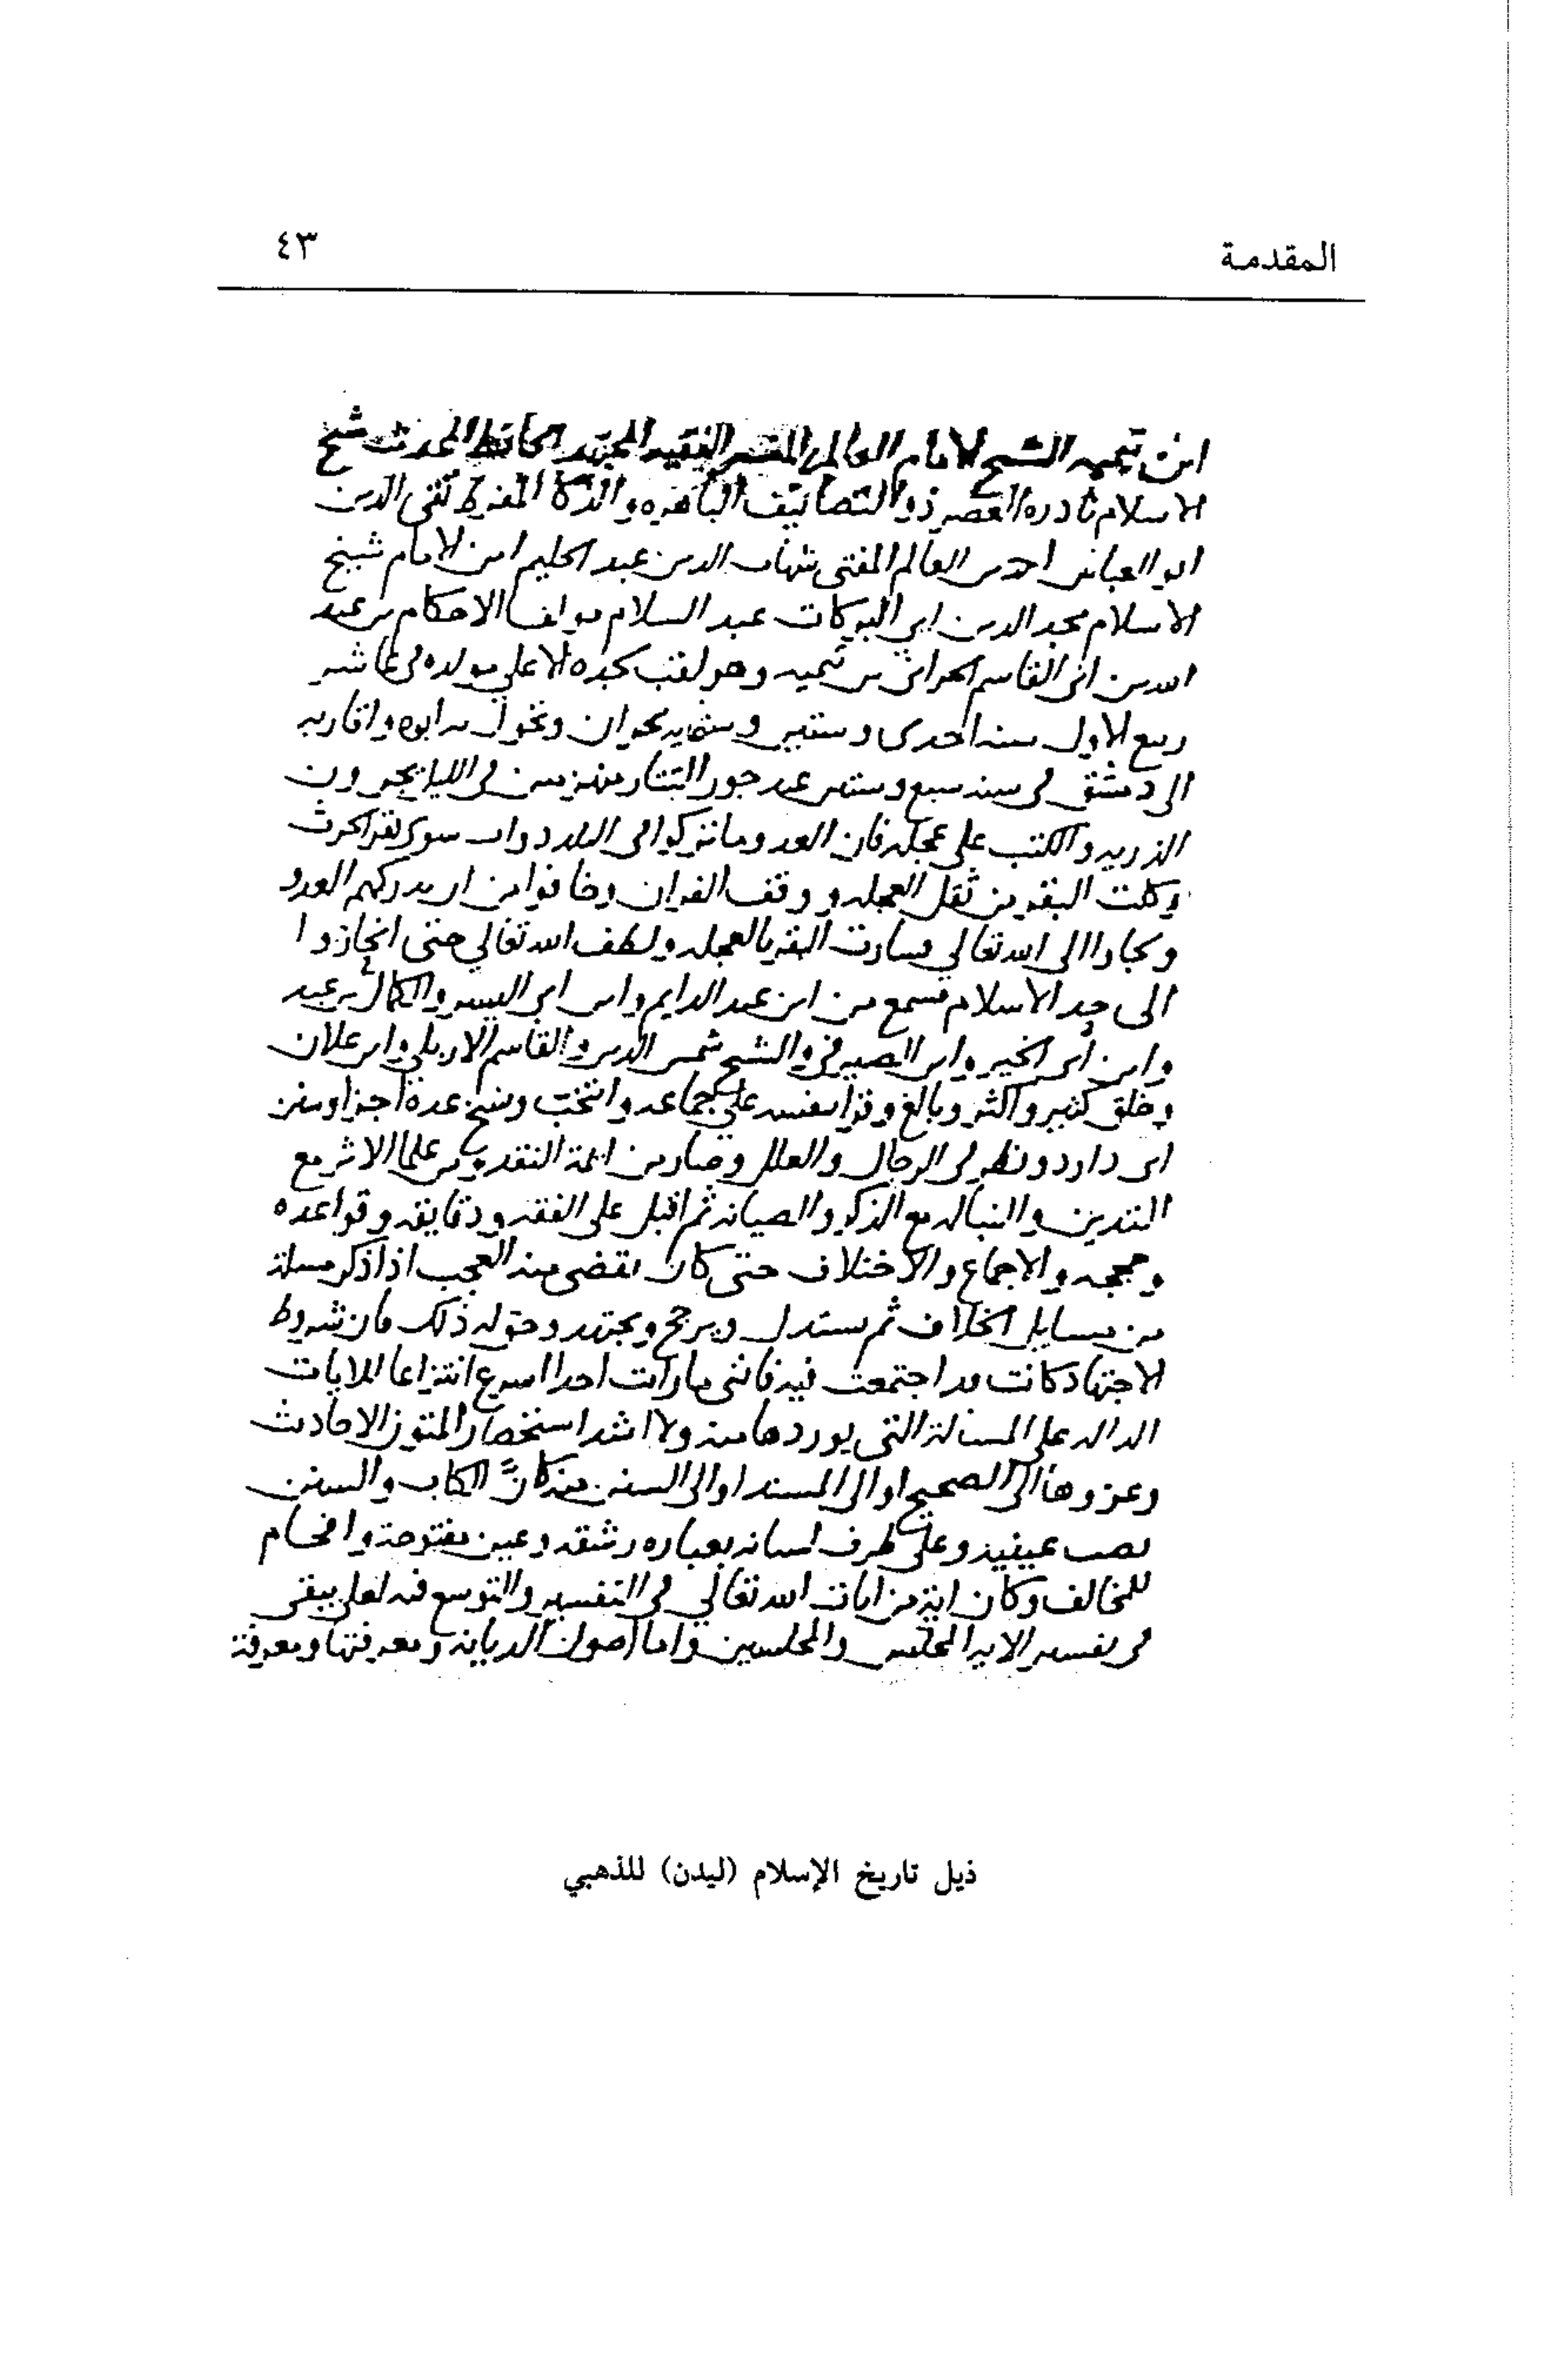 المقدمة
٤٣
ابن تيميه الشيخ الامام العالم المفسر الفقيه المجتهد الحافظ المحدث شيخ
الاسلام نادره العصر ذو التصانيف الباهره والذكا المفرط تقي الدين
ابو العباس احمد بن العالم المفتي شهاب الدين عبد الحليم ابن الامام شيخ
الاسلام مجد الدين ابي البركات عبد السلام مولف الاحكام بن عبد
الله بن ابي القاسم الحراني بن تيميه وهو لقب لجده الاعلي مولده في عاشر
ربيع الاول سنه احدى وستين وستمايه بحران وتحول به ابوه واقاربه
الى دمشق في سنه سبع وستين عند جور التتار منهزمين في الليل يجرون
الذريه والكتب على عجله فان العدو ما تركوا في البلد دواب سوى بقر الحرث
وكلت البقر من ثقل العجله ووقف الفران وخافوا من ان يدركهم العدو
ولجاوا الى الله تعالي فسارت البقر بالعجله ولطف الله تعالي حتى انحازوا
الى حد الاسلام فسمع من ابن عبد الدايم وابن ابي اليسر والكمال بن عبد
وابن ابي الخير وابن الصيرفي والشيخ شمس الدين والقاسم الاربلي وابن علان
وخلق كثير واكثر وبالغ وقرا بنفسه على جماعه وانتخب ونسخ عدة اجزا وسنن
ابي داود ونظر في الرجال والعلل وصار من ايمة النقد ومن علما الاثر مع
التدين والنباله مع الذكر والصيانه ثم اقبل على الفقه ودقايقه وقواعده
وحججه والاجماع والاختلاف حتى كان يقضى منه العجب اذا ذكر مسلة
من مسايل الخلاف ثم يستدل ويرجح ويجتهد وحق له ذلك فان شروط
الاجتهاد كانت قد اجتمعت فيه فانني ما رايت احدا اسرع انتزاعا للايات
الداله على المسئلة التي يوردها منه ولا اشد استحضارا لمتون الاحاديث
وعزوها الى الصحيح او الى المسند او الى السنن منه كانَّ الكتاب والسنن
نصب عينيه وعلى طرف لسانه بعباره رشقه وعين مفتوحة وافحام
للمخالف وكان اية من ايات الله تعالي في التفسير والتوسع فيه لعله يبقى
في تفسير الايه المجلس والمجلسين واما اصول الديانه ومعرفتها ومعرفة
ذيل تاريخ الإسلام (ليدن) للذهبي